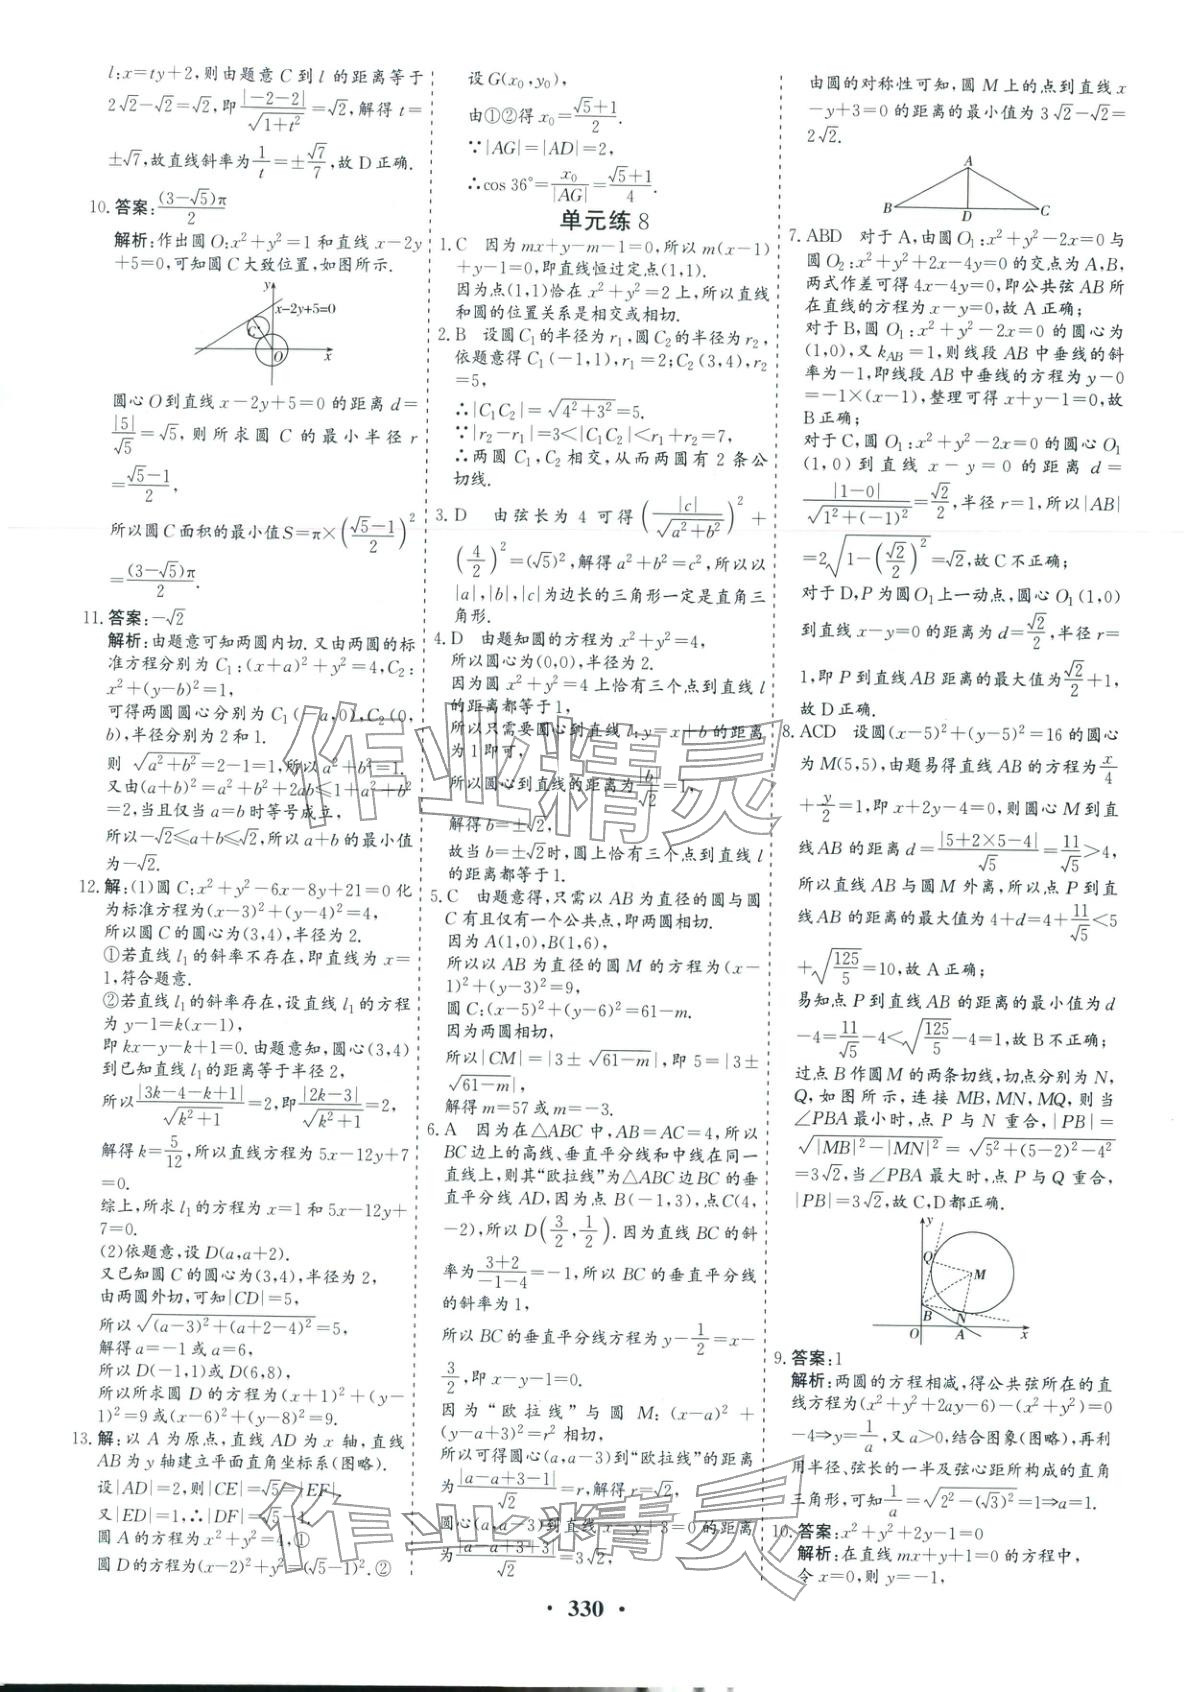 l:x=ty+2,则由题意C到l的距离等于
2√2-√2=√2,即|-2-2|/√(1+t²)=√2,解得t=
±√7,故直线斜率为1/t=±√7/7,故D正确.
10.答案:(3-√5)π/2
解析:作出圆O:x²+y²=1和直线x-2y
+5=0,可知圆C大致位置,如图所示.
y
x-2y+5=0
C
O
x
圆心O到直线x-2y+5=0的距离d=
|5|/√5=√5,则所求圆C的最小半径r
=(√5-1)/2,
所以圆C面积的最小值S=π×((√5-1)/2)²
=(3-√5)π/2.
11.答案:-√2
解析:由题意可知两圆内切.又由两圆的标
准方程分别为C₁:(x+a)²+y²=4,C₂:
x²+(y-b)²=1,
可得两圆圆心分别为C₁(-a,0),C₂(0,
b),半径分别为2和1.
则√(a²+b²)=2-1=1,所以a²+b²=1.
又由(a+b)²=a²+b²+2ab≤1+a²+b²
=2,当且仅当a=b时等号成立,
所以-√2≤a+b≤√2,所以a+b的最小值
为-√2.
12.解:(1)圆C:x²+y²-6x-8y+21=0化
为标准方程为(x-3)²+(y-4)²=4,
所以圆C的圆心为(3,4),半径为2.
①若直线l₁的斜率不存在,即直线为x=
1,符合题意.
②若直线l₁的斜率存在,设直线l₁的方程
为y-1=k(x-1),
即kx-y-k+1=0.由题意知,圆心(3,4)
到已知直线l₁的距离等于半径2,
所以|3k-4-k+1|/√(k²+1)=2,即|2k-3|/√(k²+1)=2,
解得k=5/12,所以直线方程为5x-12y+7
=0.
综上,所求l₁的方程为x=1和5x-12y+
7=0.
(2)依题意,设D(a,a+2).
又已知圆C的圆心为(3,4),半径为2,
由两圆外切,可知|CD|=5,
所以√((a-3)²+(a+2-4)²)=5,
解得a=-1或a=6,
所以D(-1,1)或D(6,8),
所以所求圆D的方程为(x+1)²+(y-
1)²=9或(x-6)²+(y-8)²=9.
13.解:以A为原点,直线AD为x轴,直线
AB为y轴建立平面直角坐标系(图略).
设|AD|=2,则|CE|=√5=|EF|,
又|ED|=1,∴|DF|=√5-1.
圆A的方程为x²+y²=4,①
圆D的方程为(x-2)²+y²=(√5-1)².②
设G(x₀,y₀),
由①②得x₀=(√5+1)/2.
∵|AG|=|AD|=2,
∴cos 36°=x₀/|AG|=(√5+1)/4.
单元练8
1.C 因为mx+y-m-1=0,所以m(x-1)
+y-1=0,即直线恒过定点(1,1).
因为点(1,1)恰在x²+y²=2上,所以直线
和圆的位置关系是相交或相切.
2.B 设圆C₁的半径为r₁,圆C₂的半径为r₂,
依题意得C₁(-1,1),r₁=2;C₂(3,4),r₂
=5,
∴|C₁C₂|=√(4²+3²)=5.
∵|r₂-r₁|=3<|C₁C₂|<r₁+r₂=7,
∴两圆C₁,C₂相交,从而两圆有2条公
切线.
3.D 由弦长为4可得(|c|/√(a²+b²))²+
(4/2)²=(√5)²,解得a²+b²=c²,所以以
|a|,|b|,|c|为边长的三角形一定是直角三
角形.
4.D 由题知圆的方程为x²+y²=4,
所以圆心为(0,0),半径为2.
因为圆x²+y²=4上恰有三个点到直线l
的距离都等于1,
所以只需要圆心到直线l:y=x+b的距离
为1即可,
所以圆心到直线的距离为|b|/√2=1,
解得b=±√2,
故当b=±√2时,圆上恰有三个点到直线l
的距离都等于1.
5.C 由题意得,只需以AB为直径的圆与圆
C有且仅有一个公共点,即两圆相切.
因为A(1,0),B(1,6),
所以以AB为直径的圆M的方程为(x-
1)²+(y-3)²=9,
圆C:(x-5)²+(y-6)²=61-m.
因为两圆相切,
所以|CM|=|3±√(61-m)|,即5=|3±
√(61-m)|,
解得m=57或m=-3.
6.A 因为在△ABC中,AB=AC=4,所以
BC边上的高线、垂直平分线和中线在同一
直线上,则其“欧拉线”为△ABC边BC的垂
直平分线AD,因为点B(-1,3),点C(4,
-2),所以D(3/2,1/2).因为直线BC的斜
率为(3+2)/(-1-4)=-1,所以BC的垂直平分线
的斜率为1,
所以BC的垂直平分线方程为y-1/2=x-
3/2,即x-y-1=0.
因为“欧拉线”与圆M:(x-a)²+
(y-a+3)²=r²相切,
所以可得圆心(a,a-3)到“欧拉线”的距离
为|a-a+3-1|/√2=r,解得r=√2,
圆心(a,a-3)到直线x-y+3=0的距离
为|a-a+3+3|/√2=3√2,
由圆的对称性可知,圆M上的点到直线x
-y+3=0的距离的最小值为3√2-√2=
2√2.
A
B
D
C
7.ABD 对于A,由圆O₁:x²+y²-2x=0与
圆O₂:x²+y²+2x-4y=0的交点为A,B,
两式作差可得4x-4y=0,即公共弦AB所
在直线的方程为x-y=0,故A正确;
对于B,圆O₁:x²+y²-2x=0的圆心为
(1,0),又k_AB=1,则线段AB中垂线的斜
率为-1,即线段AB中垂线的方程为y-0
=-1×(x-1),整理可得x+y-1=0,故
B正确;
对于C,圆O₁:x²+y²-2x=0的圆心O₁
(1,0)到直线x-y=0的距离d=
|1-0|/√(1²+(-1)²)=√2/2,半径r=1,所以|AB|
=2√(1-(√2/2)²)=√2,故C不正确;
对于D,P为圆O₁上一动点,圆心O₁(1,0)
到直线x-y=0的距离为d=√2/2,半径r=
1,即P到直线AB距离的最大值为√2/2+1,
故D正确.
8.ACD 设圆(x-5)²+(y-5)²=16的圆心
为M(5,5),由题易得直线AB的方程为x/4
+y/2=1,即x+2y-4=0,则圆心M到直
线AB的距离d=|5+2×5-4|/√5=11/√5>4,
所以直线AB与圆M外离,所以点P到直
线AB的距离的最大值为4+d=4+11/√5<5
+√(125/5)=10,故A正确;
易知点P到直线AB的距离的最小值为d
-4=11/√5-4<√(125/5)-4=1,故B不正确;
过点B作圆M的两条切线,切点分别为N,
Q,如图所示,连接MB,MN,MQ,则当
∠PBA最小时,点P与N重合,|PB|=
√(|MB|²-|MN|²)=√(5²+(5-2)²-4²)
=3√2,当∠PBA最大时,点P与Q重合,
|PB|=3√2,故C,D都正确.
y
Q
M
B
N
O
A
x
9.答案:1
解析:两圆的方程相减,得公共弦所在的直
线方程为(x²+y²+2ay-6)-(x²+y²)=0
-4⇒y=1/a,又a>0,结合图象(图略),再利
用半径、弦长的一半及弦心距所构成的直角
三角形,可知1/a=√(2²-(√3)²)=1⇒a=1.
10.答案:x²+y²+2y-1=0
解析:在直线mx+y+1=0的方程中,
令x=0,则y=-1,
• 330 •
作业精灵
作业精灵